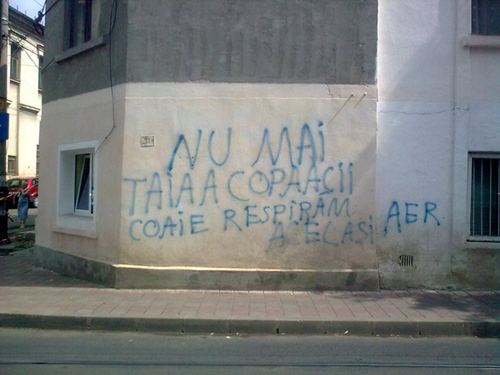 NU MAI
TAIAA COPAACII
COAIE RESPIRAM
ACELASI AER